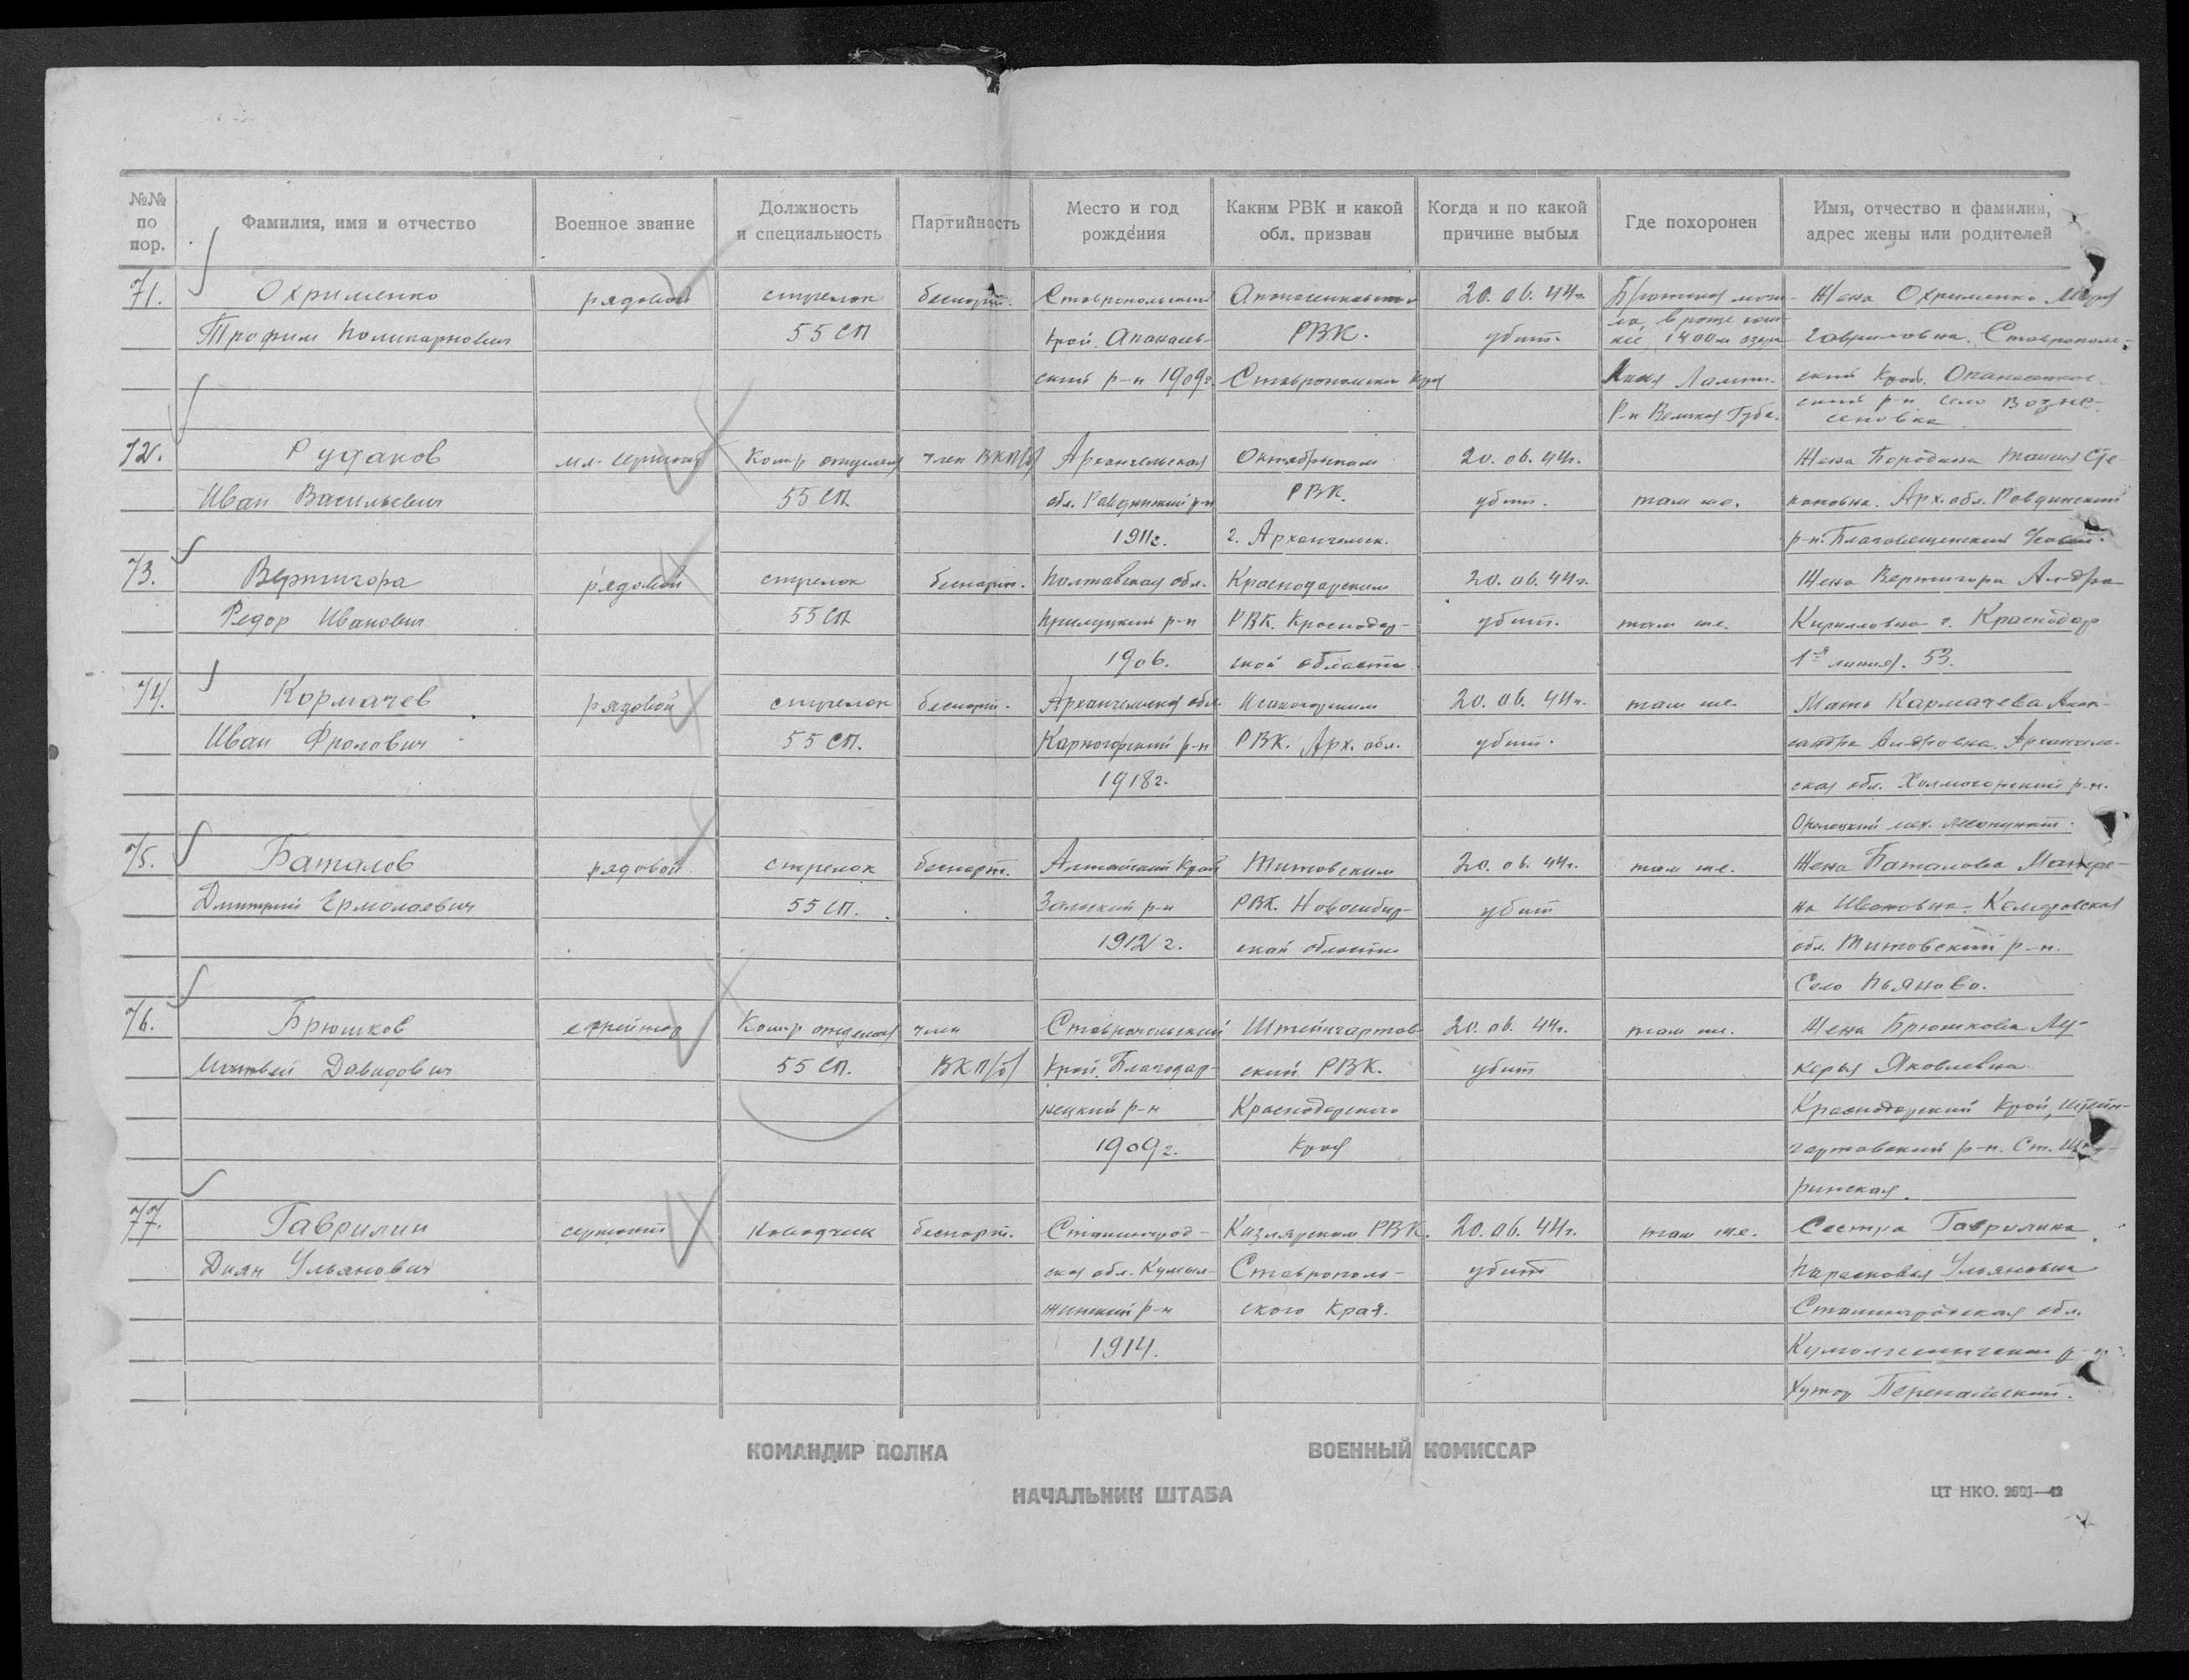 №№ по пор.
Фамилия, имя и отчество
Военное звание
Должность и специальность
Партийность
Место и год рождения
Каким РВК и какой обл. призван
Когда и по какой причине выбыл
Где похоронен
Имя, отчество и фамилия, адрес жены или родителей
71. Охрименко рядовой стрелок беспарт. Ставропольский 20.06.44г. Жена Охрименко
Трофим Поликарпович 55 СП край РВК. убит. Гавриловна. Ставрополь-
ский р-н 1909г. Ставропольск. ский край.
Р-н Великая Губа. ский р-н село Возне-
сеновка
72. Рудаков мл. сержант Комир отделен Член ВКП/б/ Архангельская Октябрьским 20.06.44г. Жена Бородина
Иван Васильевич 55 СП. обл. Ровдинский р-н РВК. убит. там же. Арх. обл. Ровдинский
1911г. г. Архангельск. р-н. Благовещенский
73. Вертигора рядовой стрелок беспарт. Полтавская обл. Краснодарским 20.06.44г. Жена Вертигора
Федор Иванович 55 СП. Прилуцкий р-н РВК. Краснодар- убит. там же. Кирилловна г. Краснодар
1906. ской области. 1я линия. 53.
74. Кормачев рядовой стрелок беспарт. Архангельская обл. 20.06.44г. там же. Мать Кармачева Алек-
Иван Фролович 55 СП. Карпогорский р-н РВК. Арх. обл. убит. сандра Архангель-
1918г. ская обл. Холмогорский р-н.
Орлецкий мех. лесопункт.
75. Баталов рядовой стрелок беспарт. Алтайский край Титовским 20.06.44г. там же. Жена Баталова Матре-
Дмитрий Ермолаевич 55 СП. р-н РВК. Новосибир- убит на Ивановна. Кемеровская
1912г. ской области обл. Титовский р-н.
Село Пьяново.
76. Брюшков ефрейтор Комир отделен член Ставропольский Штейнгартов- 20.06.44г. там же. Жена Брюшкова Лу-
Матвей Давидович 55 СП. ВКП/б/ край. Благодар- ский РВК. убит керья Яковлевна
нецкий р-н Краснодарского Краснодарский край, Штейн-
1909г. края гартовский р-н. Ст.
ринская.
77. Гаврилин сержант наводчик беспарт. Сталинград- Кизлярским РВК. 20.06.44г. там же. Сестра Гаврилина
Диян Ульянович ская обл. Кумыл- Ставрополь- убит Парасковья Ульяновна
женский р-н ского края. Сталинградская обл.
1914. р-н.
Хутор
КОМАНДИР ПОЛКА
ВОЕННЫЙ КОМИССАР
НАЧАЛЬНИК ШТАБА
ЦТ НКО. 2601—42